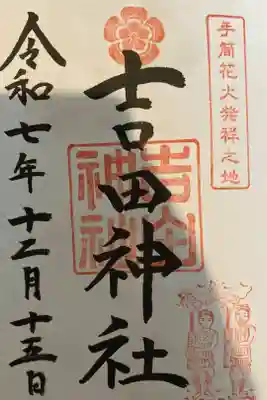 手筒花火発祥之地
吉田神社
吉田
神社
令和七年十二月十五日